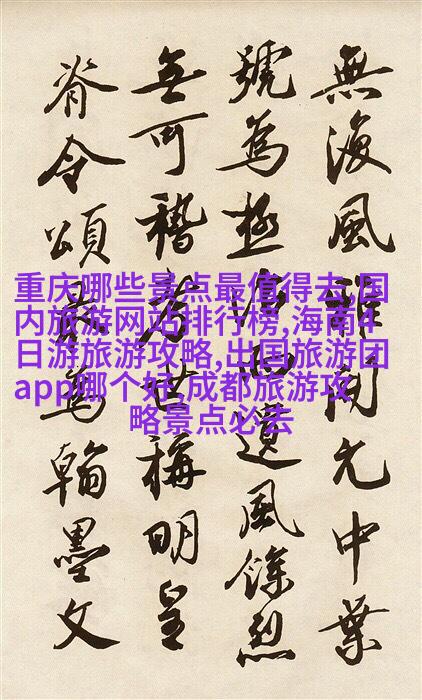 無復風雅開元中葉
號為極治遺風餘烈
無可稽考世稱明皇
脊令頌最為翰墨文
重庆哪些景点最值得去,国
内旅游网站排行榜,海南4
日游旅游攻略,出国旅游团
app哪个好,成都旅游攻
略景点必去